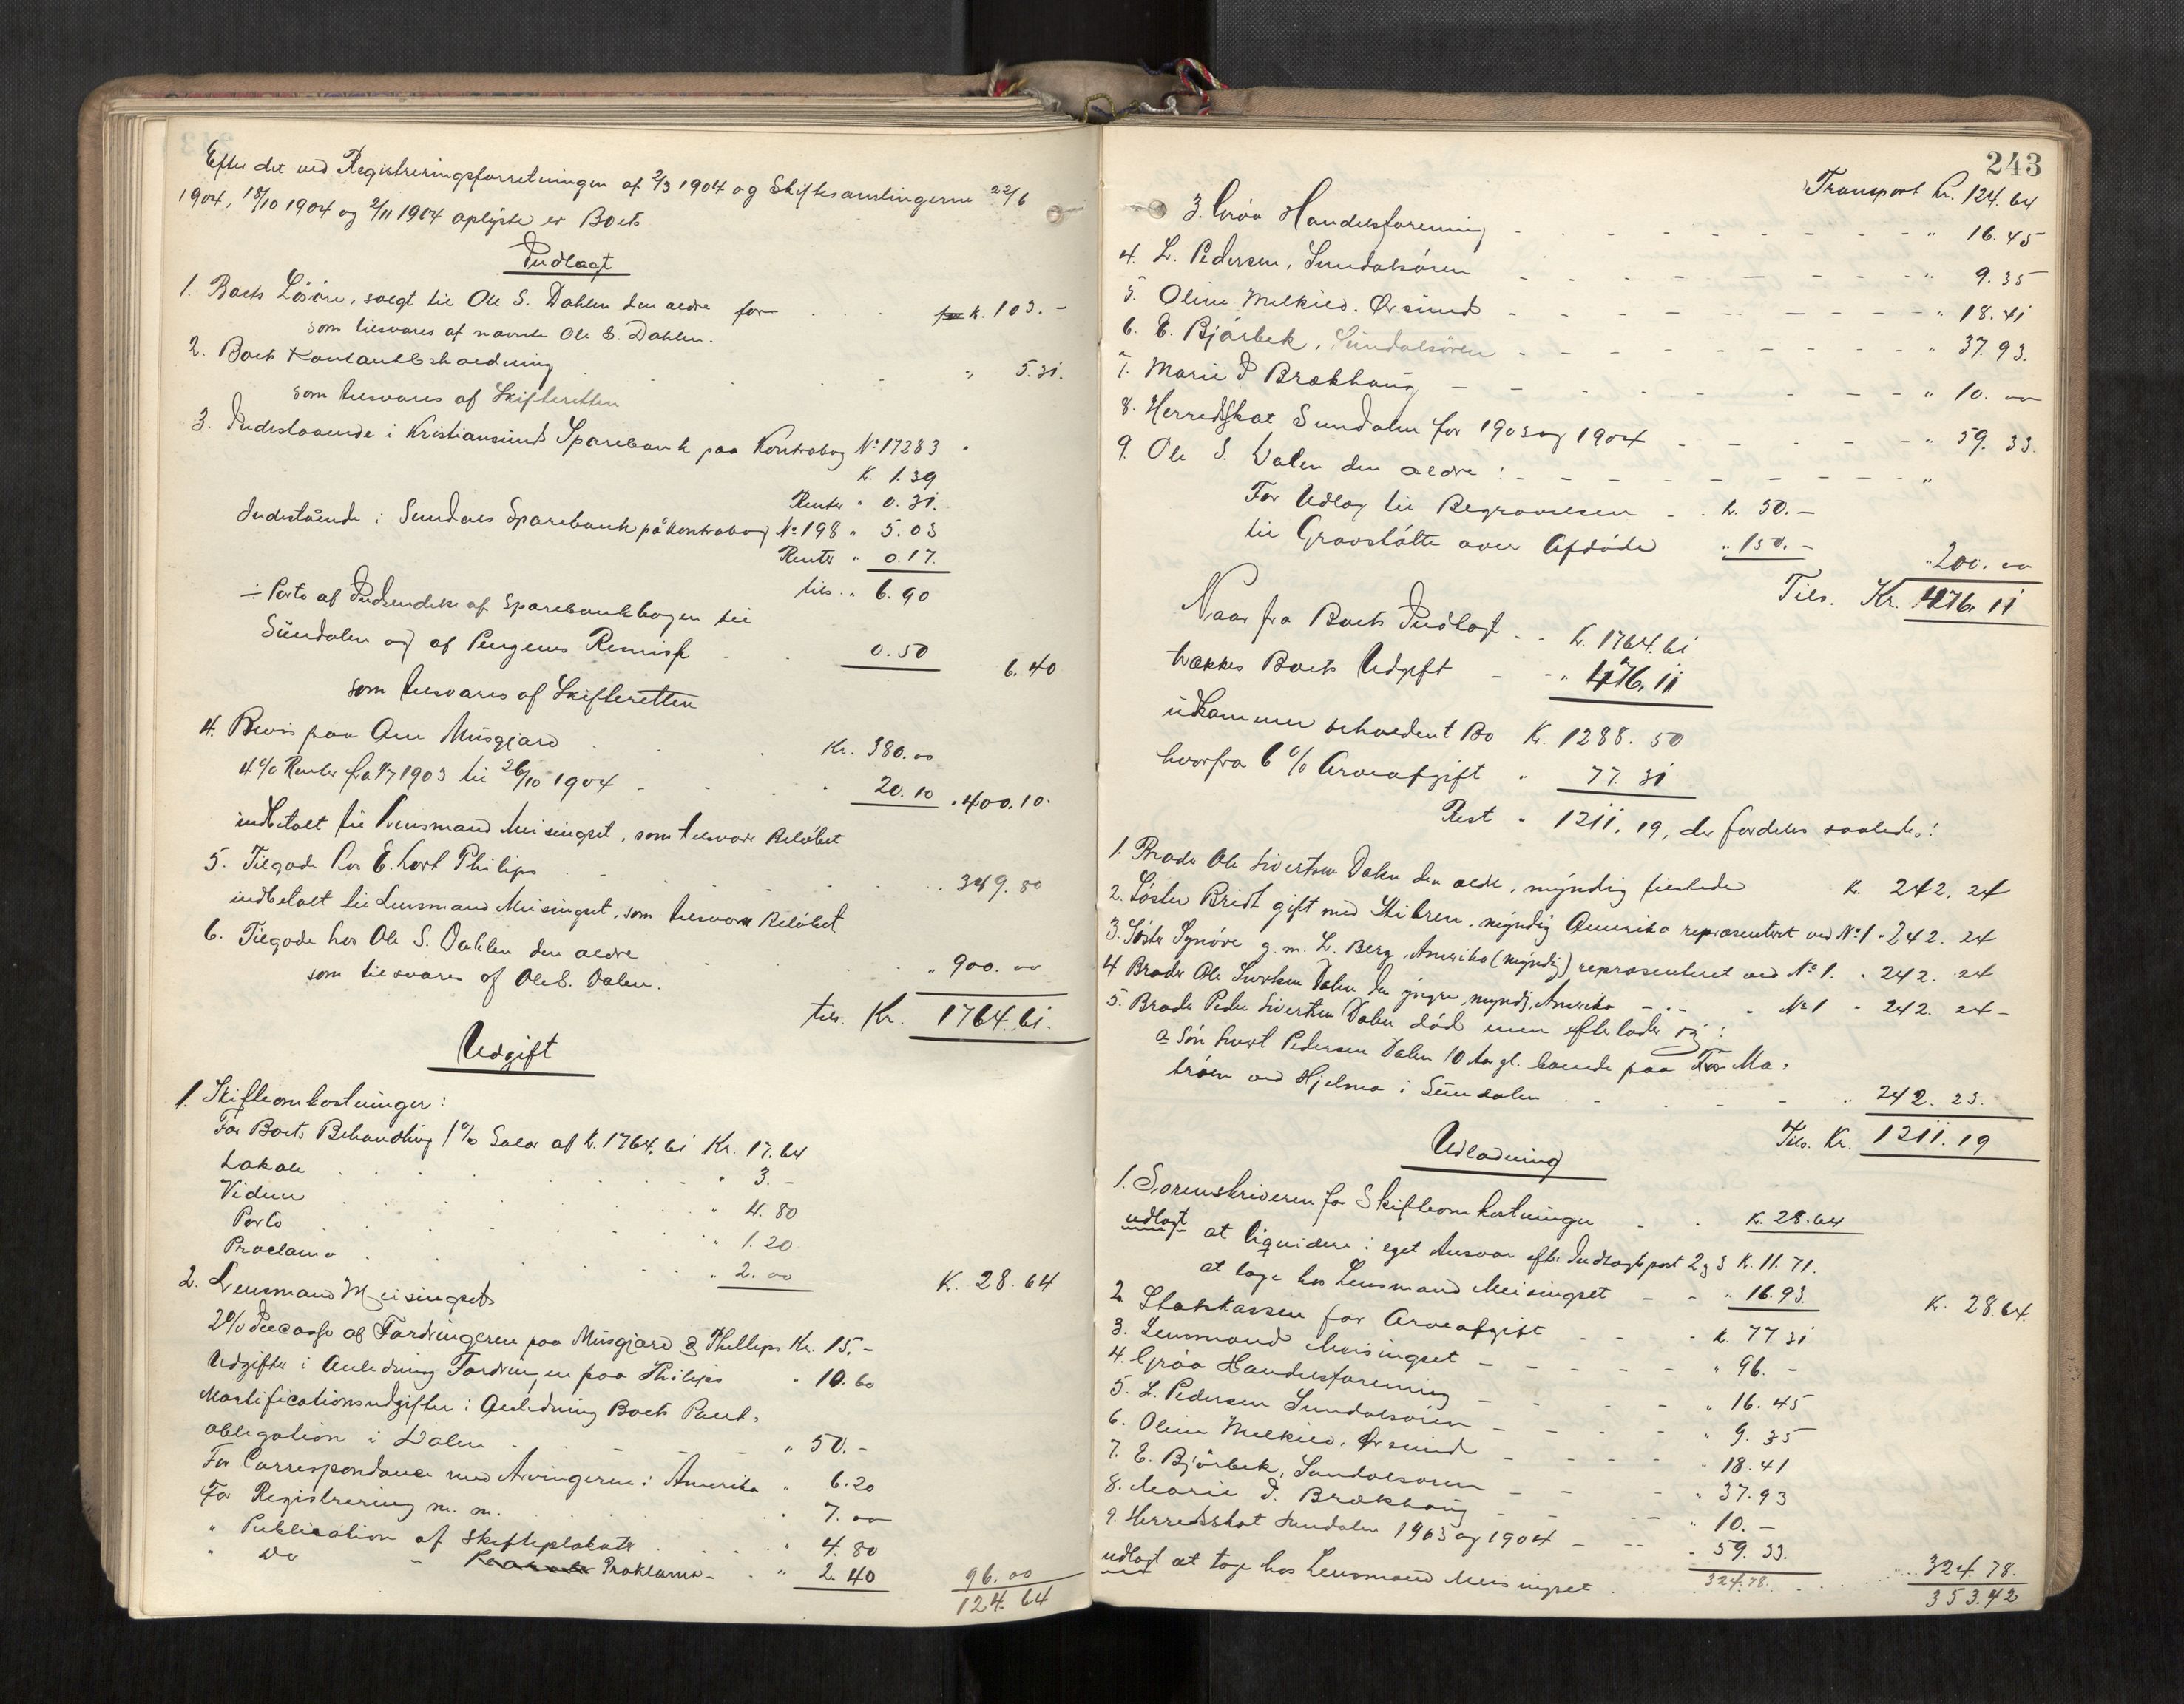 Efter det ved Registreringsforretningen af 2/3 1904 og Skiftesamlingerne 22/6
1904, 18/10 1904 og 2/11 1904 oplyste er Boets
Indtægt
1. Boets Løsøre, solgt til Ole S. Dahlen den ældre for . . . K. 103. -
som tilsvares af nævnte Ole S. Dahlen.
2. Boets Kontantbeholdning . . . " 5.31.
som tilsvares af Skifteretten
3. Indestaaende i Kristiansunds Sparebank paa Kontrabog No 17283 .
K. 1.39
Renter " 0.31.
Indestående i Sundals Sparebank på Kontrabog No 198 " 5.03
Renter " 0.17.
tils. " 6.90
÷ Porto af Indsendelse af Sparebankbogen til
Sundalen og af Pengenes Remisse . . 0.50 6.40
som tilsvares af Skifteretten
4. Bevis paa Ane Musgjærd . . . Kr. 380.00
4% Renter fra 1/7 1903 til 26/10 1904 - . . " 20.10 " 400.10.
indbetalt til Lensmand Meisingset, som tilsvarer Beløbet
5. Tilgode hos E. Lort Philips . . . " 349.80
indbetalt til Lensmand Meisingset, som tilsvarer Beløbet
6. Tilgode hos Ole S. Dahlen den ældre . . . " 900.00
som tilsvares af Ole S. Dalen.
tils. Kr. 1764.61.
Udgift
1. Skifteomkostninger:
For Boets Behandling 1% Salær af K. 1764.61 Kr. 17.64
Lokale . . . " 3.-
Vidner . . . " 4.80
Porto . . . " 1.20
Proclama . . . " 2.00 K. 28.64
2. Lensmand Meisingset
2% Incasso af Fordringerne paa Musgjærd & Phillips Kr. 15.-
Udgifter i Anledning Fordringen paa Philips " 10.60
Mortificationsudgifter i Anledning Boets Pant-
obligation i Dalen . . . " 50.-
For Correspondance med Arvingerne i Amerika " 6.20
For Registrering m. m. . . . " 7.00
" Publication af Skifteplakater . . . " 4.80
" Do - Proklama - " 2.40 96.00
124.64
243
Transport K. 124.64
3. Grøa Handelsforening - - - " 16.45
4. L. Pedersen, Sundalsøren - - - " 9.35
5. Oline Melkild. Øxsund - - - " 18.41
6. E. Bjørbek, Sundalsøren - - - " 37.93.
7. Marie I Brækhaug - - - " 10.00
8. Herredskat Sundalen for 1903 og 1904 - - - " 59.33.
9. Ole S. Dalen den ældre: - - - "
For Udlæg til Begravelsen - . K. 50.-
til Gravstøtte over Afdøde " 150.- " 200.00
Tils. Kr. 476.11
Naar fra Boets Indtægt - . K. 1764.61
trækkes Boets Udgift - - " 476.11
udkommer beholdent Bo K. 1288.50
hvorfra 6% Arveafgift " 77.31
Rest " 1211.19, der fordeles saaledes:
1. Broder Ole Sivertsen Dalen den ældre, myndig tilstede K. 242.24
2. Søster Bridt gift med Stibren, myndig Amerika repræsenteret ved No 1 - 242.24
3. Søster Synøve g. m. L. Berg, Amerika (myndig) repræsenteret ved No 1. " 242.24
4 Broder Ole Sivertsen Dalen den yngre, myndig, Amerika - - - " No 1 " 242.24 -
5. Broder Peder Sivertsen Dalen død men efterlader sig:
a Søn Sivert Pedersen Dalen 10 Aar gl. boende paa For Mo-
trøen ved Hjelmo i Sundalen . - - " 242.23.
Tils. Kr. 1211.19
Udlodning
1. Sorenskriveren for Skifteomkostninger - . K. 28.64
udlagt at liquidere i eget Ansvar efter Indtægtspost 2 & 3 K. 11.71.
at tage hos Lensmand Meisingset - - " 16.93. K. 28.64.
2 Statskassen for Arveafgift - - - K. 77.31
3. Lensmand Meisingset - - - " 96.-
4. Grøa Handelsforening - - - " 16.45
5. L. Pedersen Sundalsøren - - - " 9.35
6. Oline Melkild, Øxsund - - - " 18.41
7. E. Bjørbek, Sundalsøren - - - " 37.93
8. Marie I. Brækhaug - - - " 10.-
9. Herredsskat Sundalen 1903 og 1904 - - - " 59.33.
udlagt at tage hos Lensmand Meisingset . . . 324.78. . . . " 324.78.
353.42